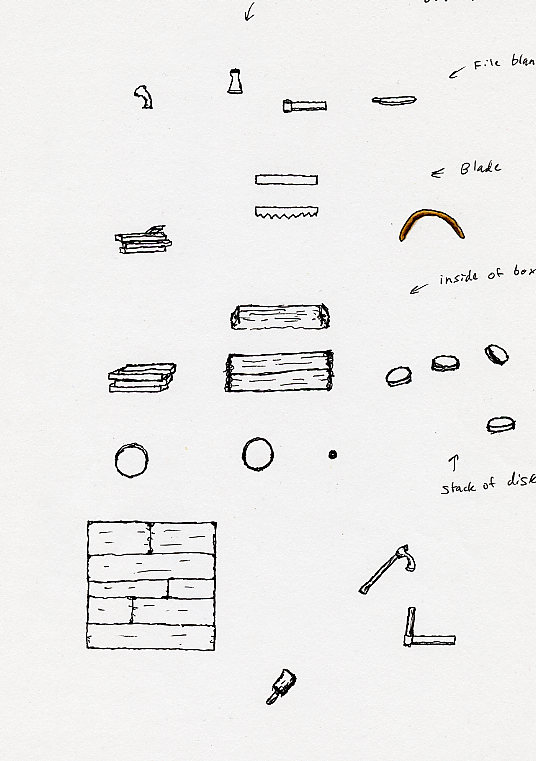 File blan
Blade
inside of box
stack of disk